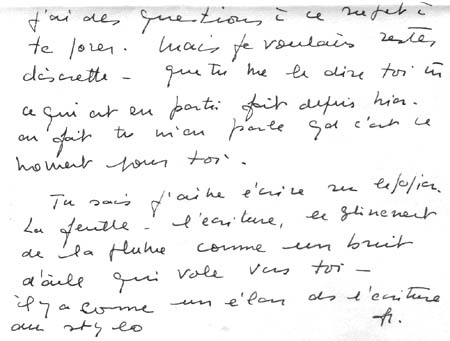 j'ai des questions à ce sujet à
te poser. Mais je voulais rester
discrette - que tu me le dire toi
ce qui est en partie fait depuis hier.
en fait tu m'en parle qd c'est le
moment pour toi.
Tu sais j'aime écrire sur le papier.
La feuille - l'écriture, le glissement
de la plume comme un bruit
d'aile qui vole vers toi -
il y a comme un élan ds l'écriture
au stylo